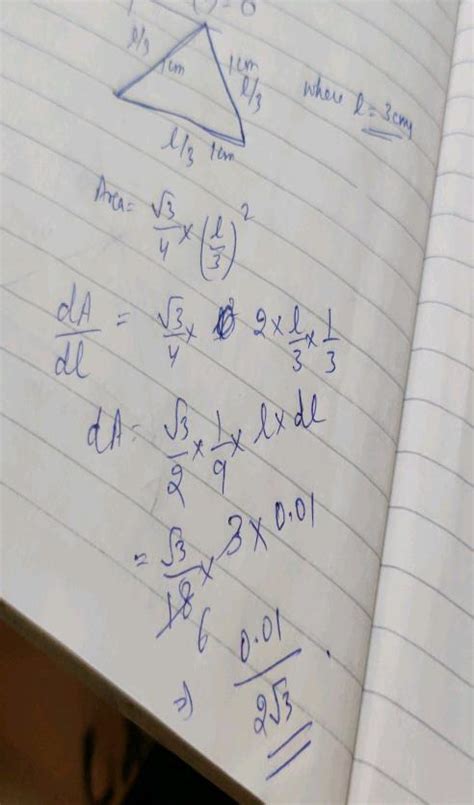 ( ) = 0
l/3 1cm 1cm l/3
where l = 3cm
l/3 1cm
Area = √3/4 × (l/3)²
dA/dl = √3/4 × 2 × l/3 × 1/3
dA = √3/2 × 1/9 × l × dl
= √3/18 × 3 × 0.01
6
⇒ 0.01/2√3